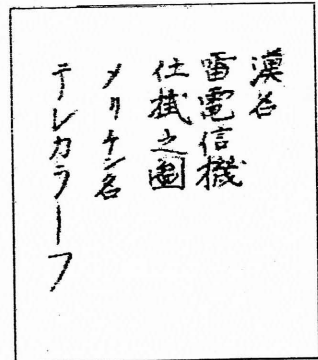 漢名
雷電信機
仕掛之圖
メリケン名
テレカラーフ